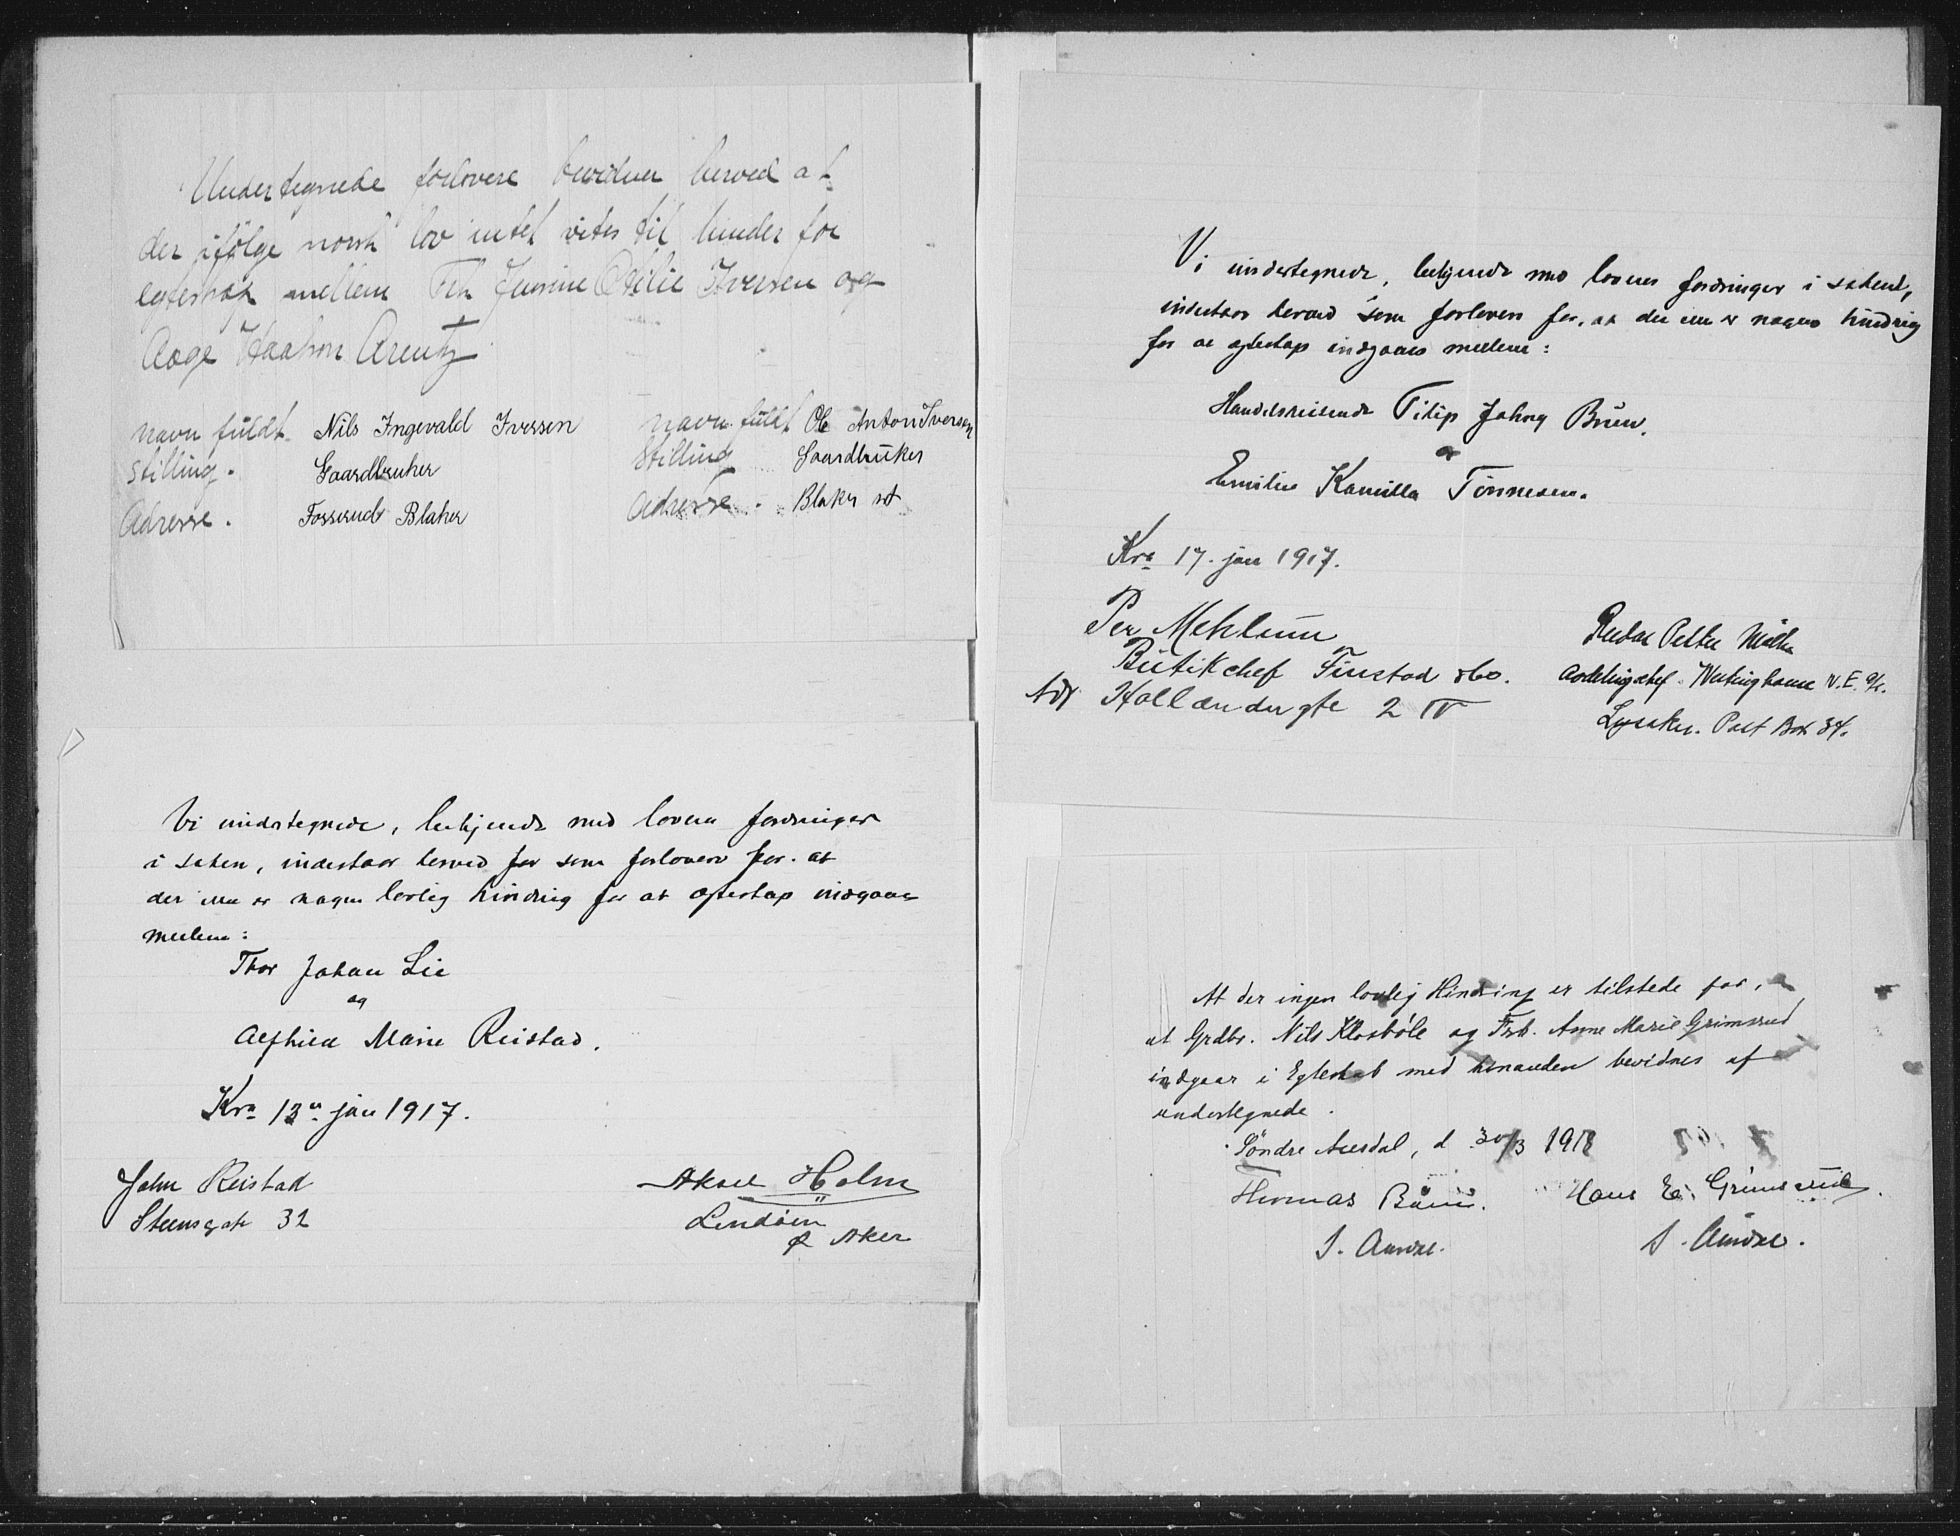 Undertegnede forlovere bevidner herved at
der ifölge norsk lov intet vites til hinder for
egteskap mellem Frk Jensine Otilie Iversen og
Aage Haakon Arentz
navn fuldt. Nils Ingevald Iversen
stilling. Gaardbruker
Adresse. Fosserud Blaker
navn fuldt Ole Anton Iversen
Stilling Gaardbruker
Adresse. Blaker st
Vi undertegnede, bekjendt med lovens fordringer
i saken, indestaar herved for som forlovere for. at
der ikke er nogen lovlig hindring for at egteskap indgaaes
mellem:
Thor Johan Lie
og
Alfhild Marie Reistad.
Kra 13de jan 1917.
John Reistad
Steensgate 32
Aksel Holm
Lindöen
Aker
Vi undertegnede, bekjendt med lovens fordringer i saken,
indestaar herved som forlovere for, at der ikke er nogen hindring
for at egteskap indgaaes mellem:
Handelsreisende Filip Johny Bruu.
og
Emilie Kamilla Tönnesen.
Kra 17. jan 1917.
Per Mehlum
Butikchef Finstad &Co.
Adr Hollændergte 2 IV
Petter
Avdelingschef Westinghouse N.E. A/s.
Lysaker. Post Box 34.
At der ingen lovlig Hindring er tilstede for,
at Grdbr. Nils Klosböle og Frk. Anne Marie Grimsrud
indgaar i Egteskab med hinanden bevidnes af
undertegnede.
Söndre Aurdal, d 30/3 1918
Thomas
S. Aurdal.
Hans E. Grimsrud.
S. Aurdal.